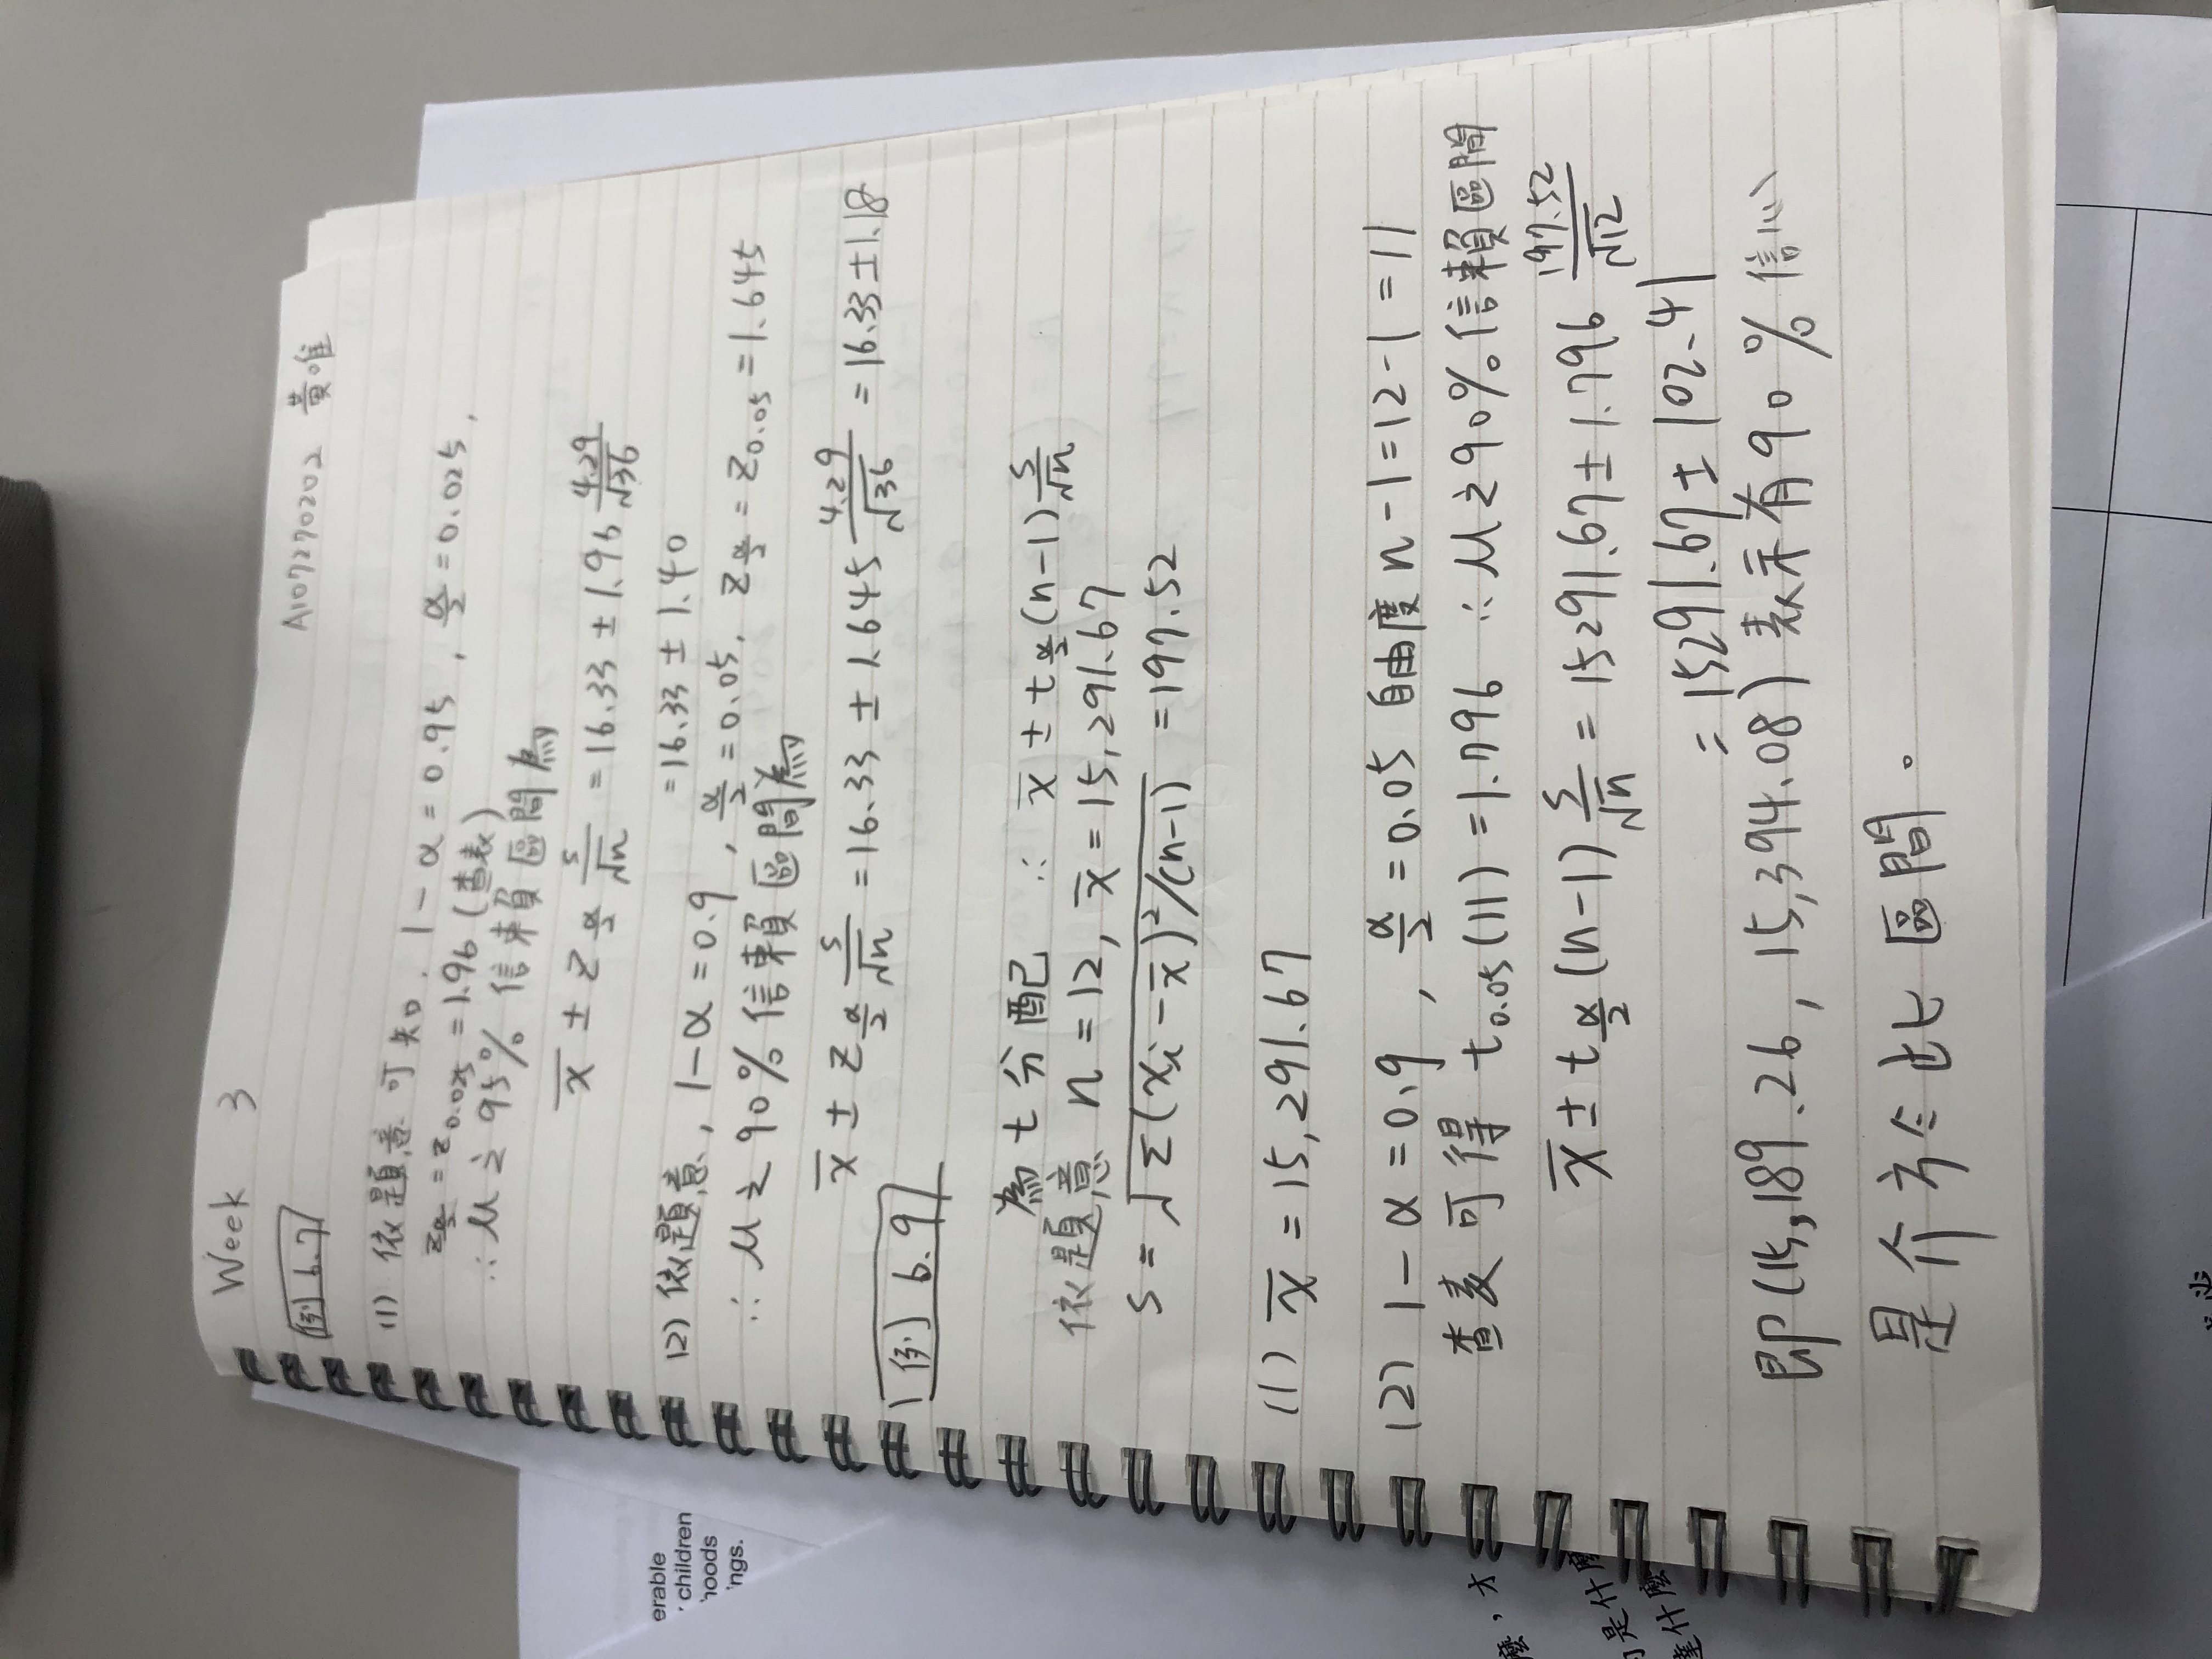 Week 3
A107270202 黃唯
例 6.7
(1) 依題意可知, 1-α=0.95, α/2=0.025,
z_{α/2}=z_{0.025}=1.96(查表)
∴μ之95%信賴區間為
x̄ ± z_{α/2} s/√n = 16.33 ± 1.96 4.29/√36
=16.33 ± 1.40
(2) 依題意, 1-α=0.9, α/2=0.05, z_{α/2}=z_{0.05}=1.645
∴μ之90%信賴區間為
x̄ ± z_{α/2} s/√n = 16.33 ± 1.645 4.29/√36 = 16.33±1.18
例 6.9
為t分配 ∴ x̄ ± t_{α/2}(n-1) s/√n
依題意 n=12, x̄=15,291.67
s = √Σ(xᵢ-x̄)²/(n-1) =197.52
(1) x̄ = 15,291.67
(2) 1-α=0.9, α/2=0.05 自由度n-1=12-1=11
查表可得 t_{0.05}(11)=1.796 ∴μ之90%信賴區間
x̄ ± t_{α/2}(n-1) s/√n = 15291.67±1.796 197.52/√12
= 15291.67± 102.41
即(15,189.26, 15,394.08)表示有90%信心
是介於此區間。
erable
children
hoods
ngs.
麼，才
是什麼
達什麼